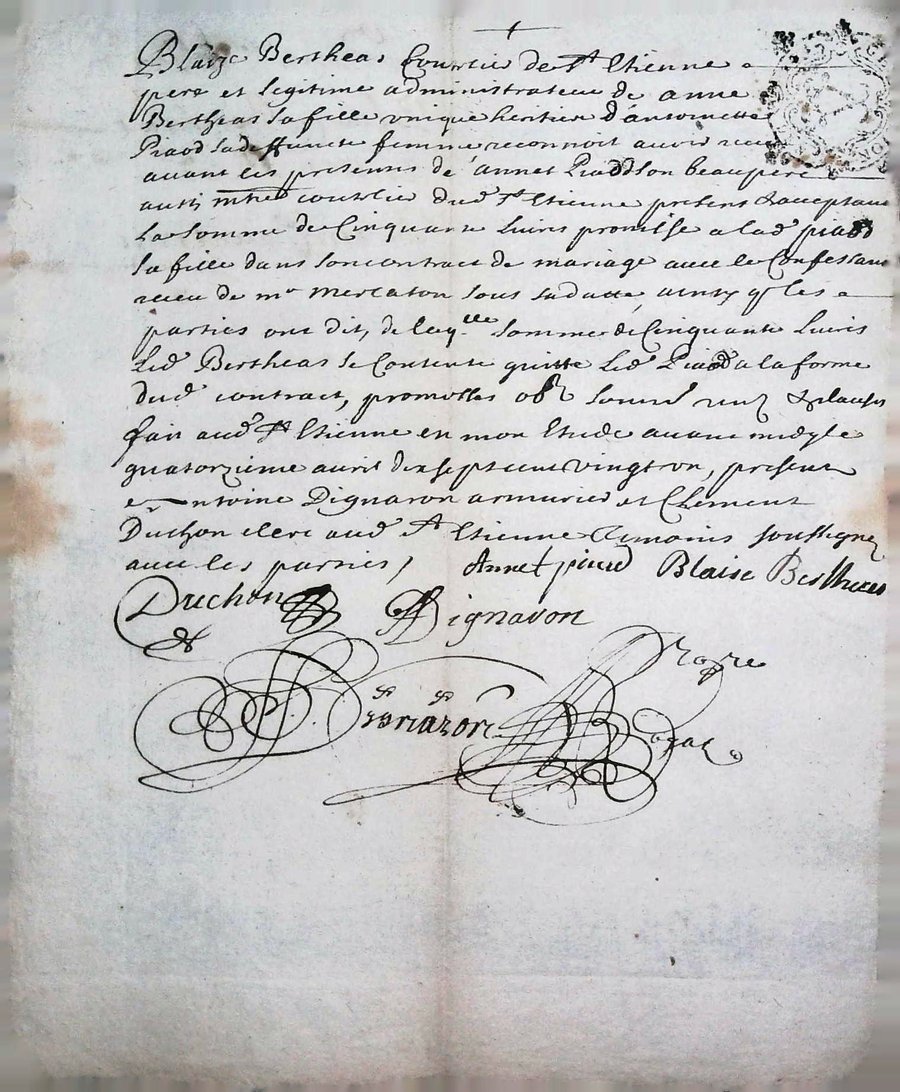 Blaize Bertheas Courtier de St Etienne
pere et legitime administrateur de anne
Bertheas sa fille unique heritiere d'antoinette
Piaod sa deffuncte femme reconnoit avoir receu
avant les presentes de annet Piaod son beaupere
aussi mtre courtier dud St Etienne present & acceptant
La somme de Cinquante Livres promise a lad piaod
sa fille dans son contract de mariage avec le Confessant
receu de mr mercaton sous sa datte, ainsy q les
parties ont dit, de laqlle somme de Cinquante Livres
Led Bertheas se Contente quitte Led Piaod a la forme
dud contract, promettes obl & clauses
fait aud St Etienne en mon Etude avant midy le
quatorzieme avril dix sept cent vingt , present
antoine Dignaron armurier et Clement
Duchon clerc aud St Etienne temoins soussignez
avec les parties,
Annet piaod Blaise Bertheas
Duchon Dignaron